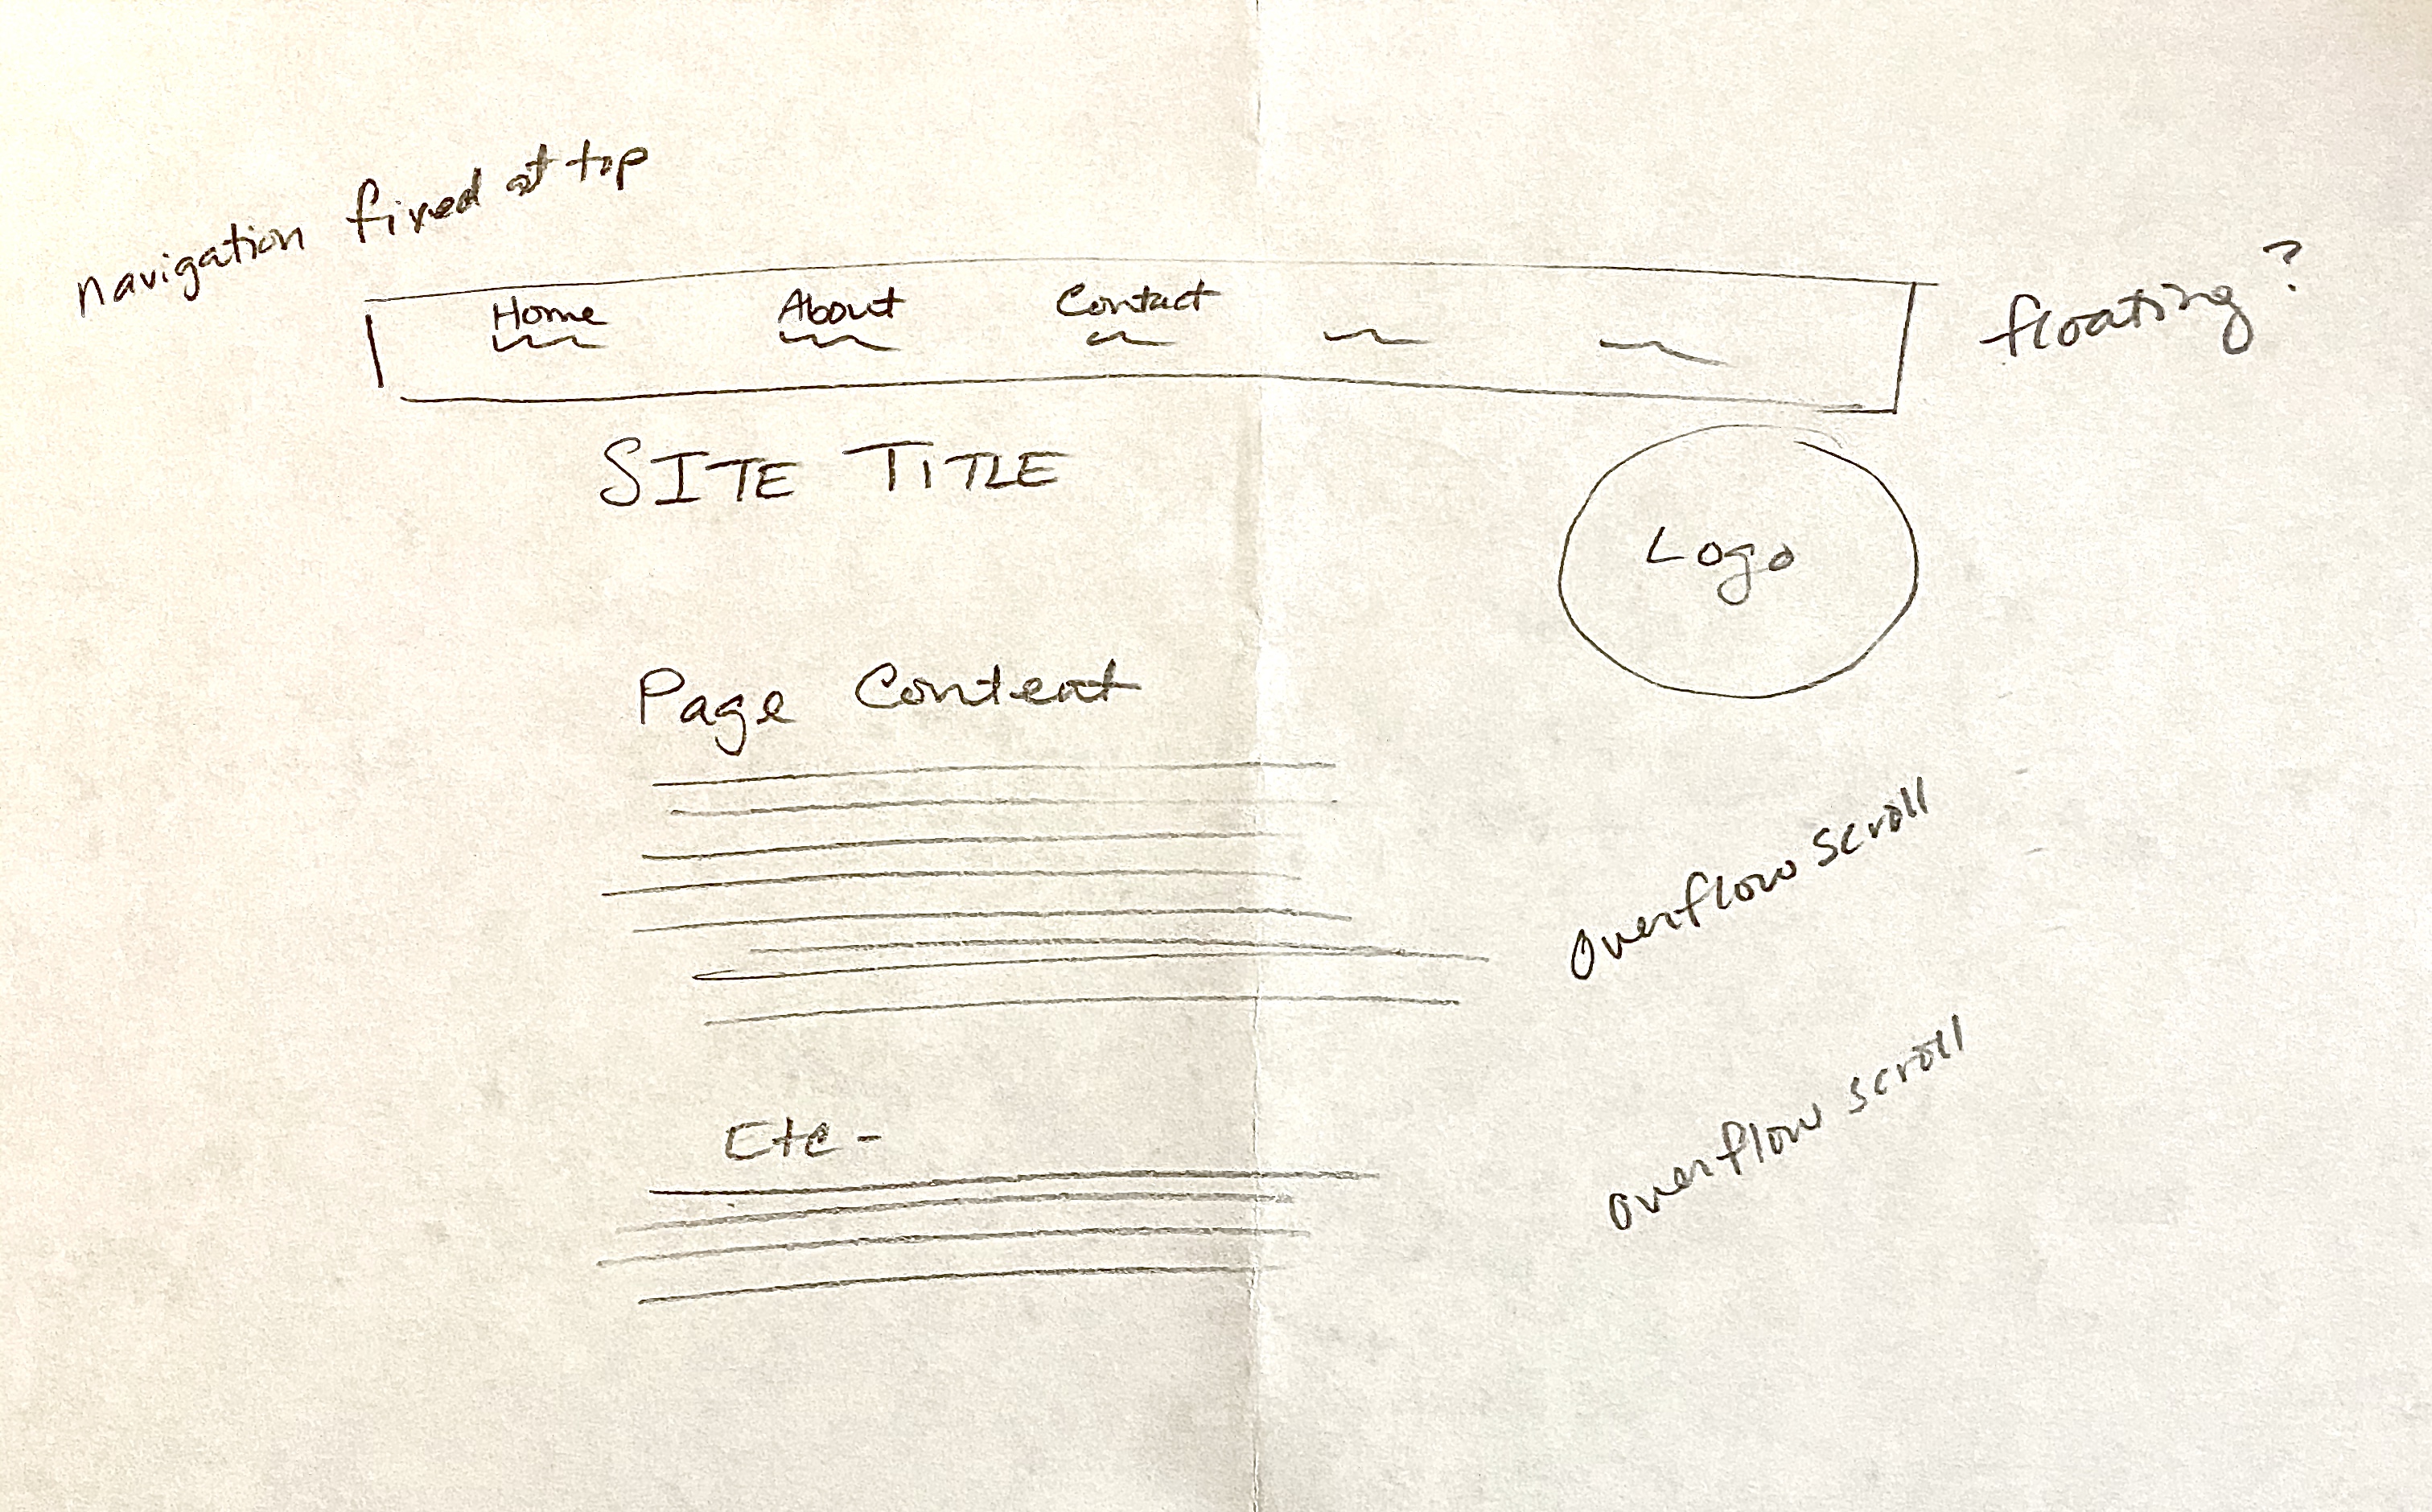 navigation fixed at top
Home About Contact
floating?
SITE TITLE
Logo
Page Content
Overflow scroll
Etc -
overflow scroll